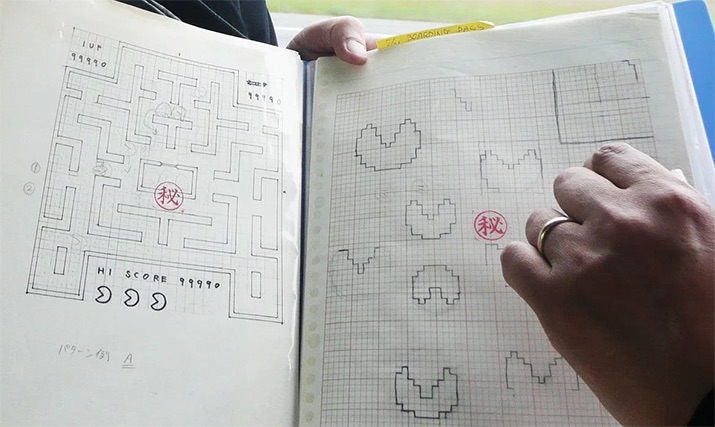 1UP
99990
99990
①
②
秘
HI SCORE 99990
パターン例 A
BOARDING PASS
秘